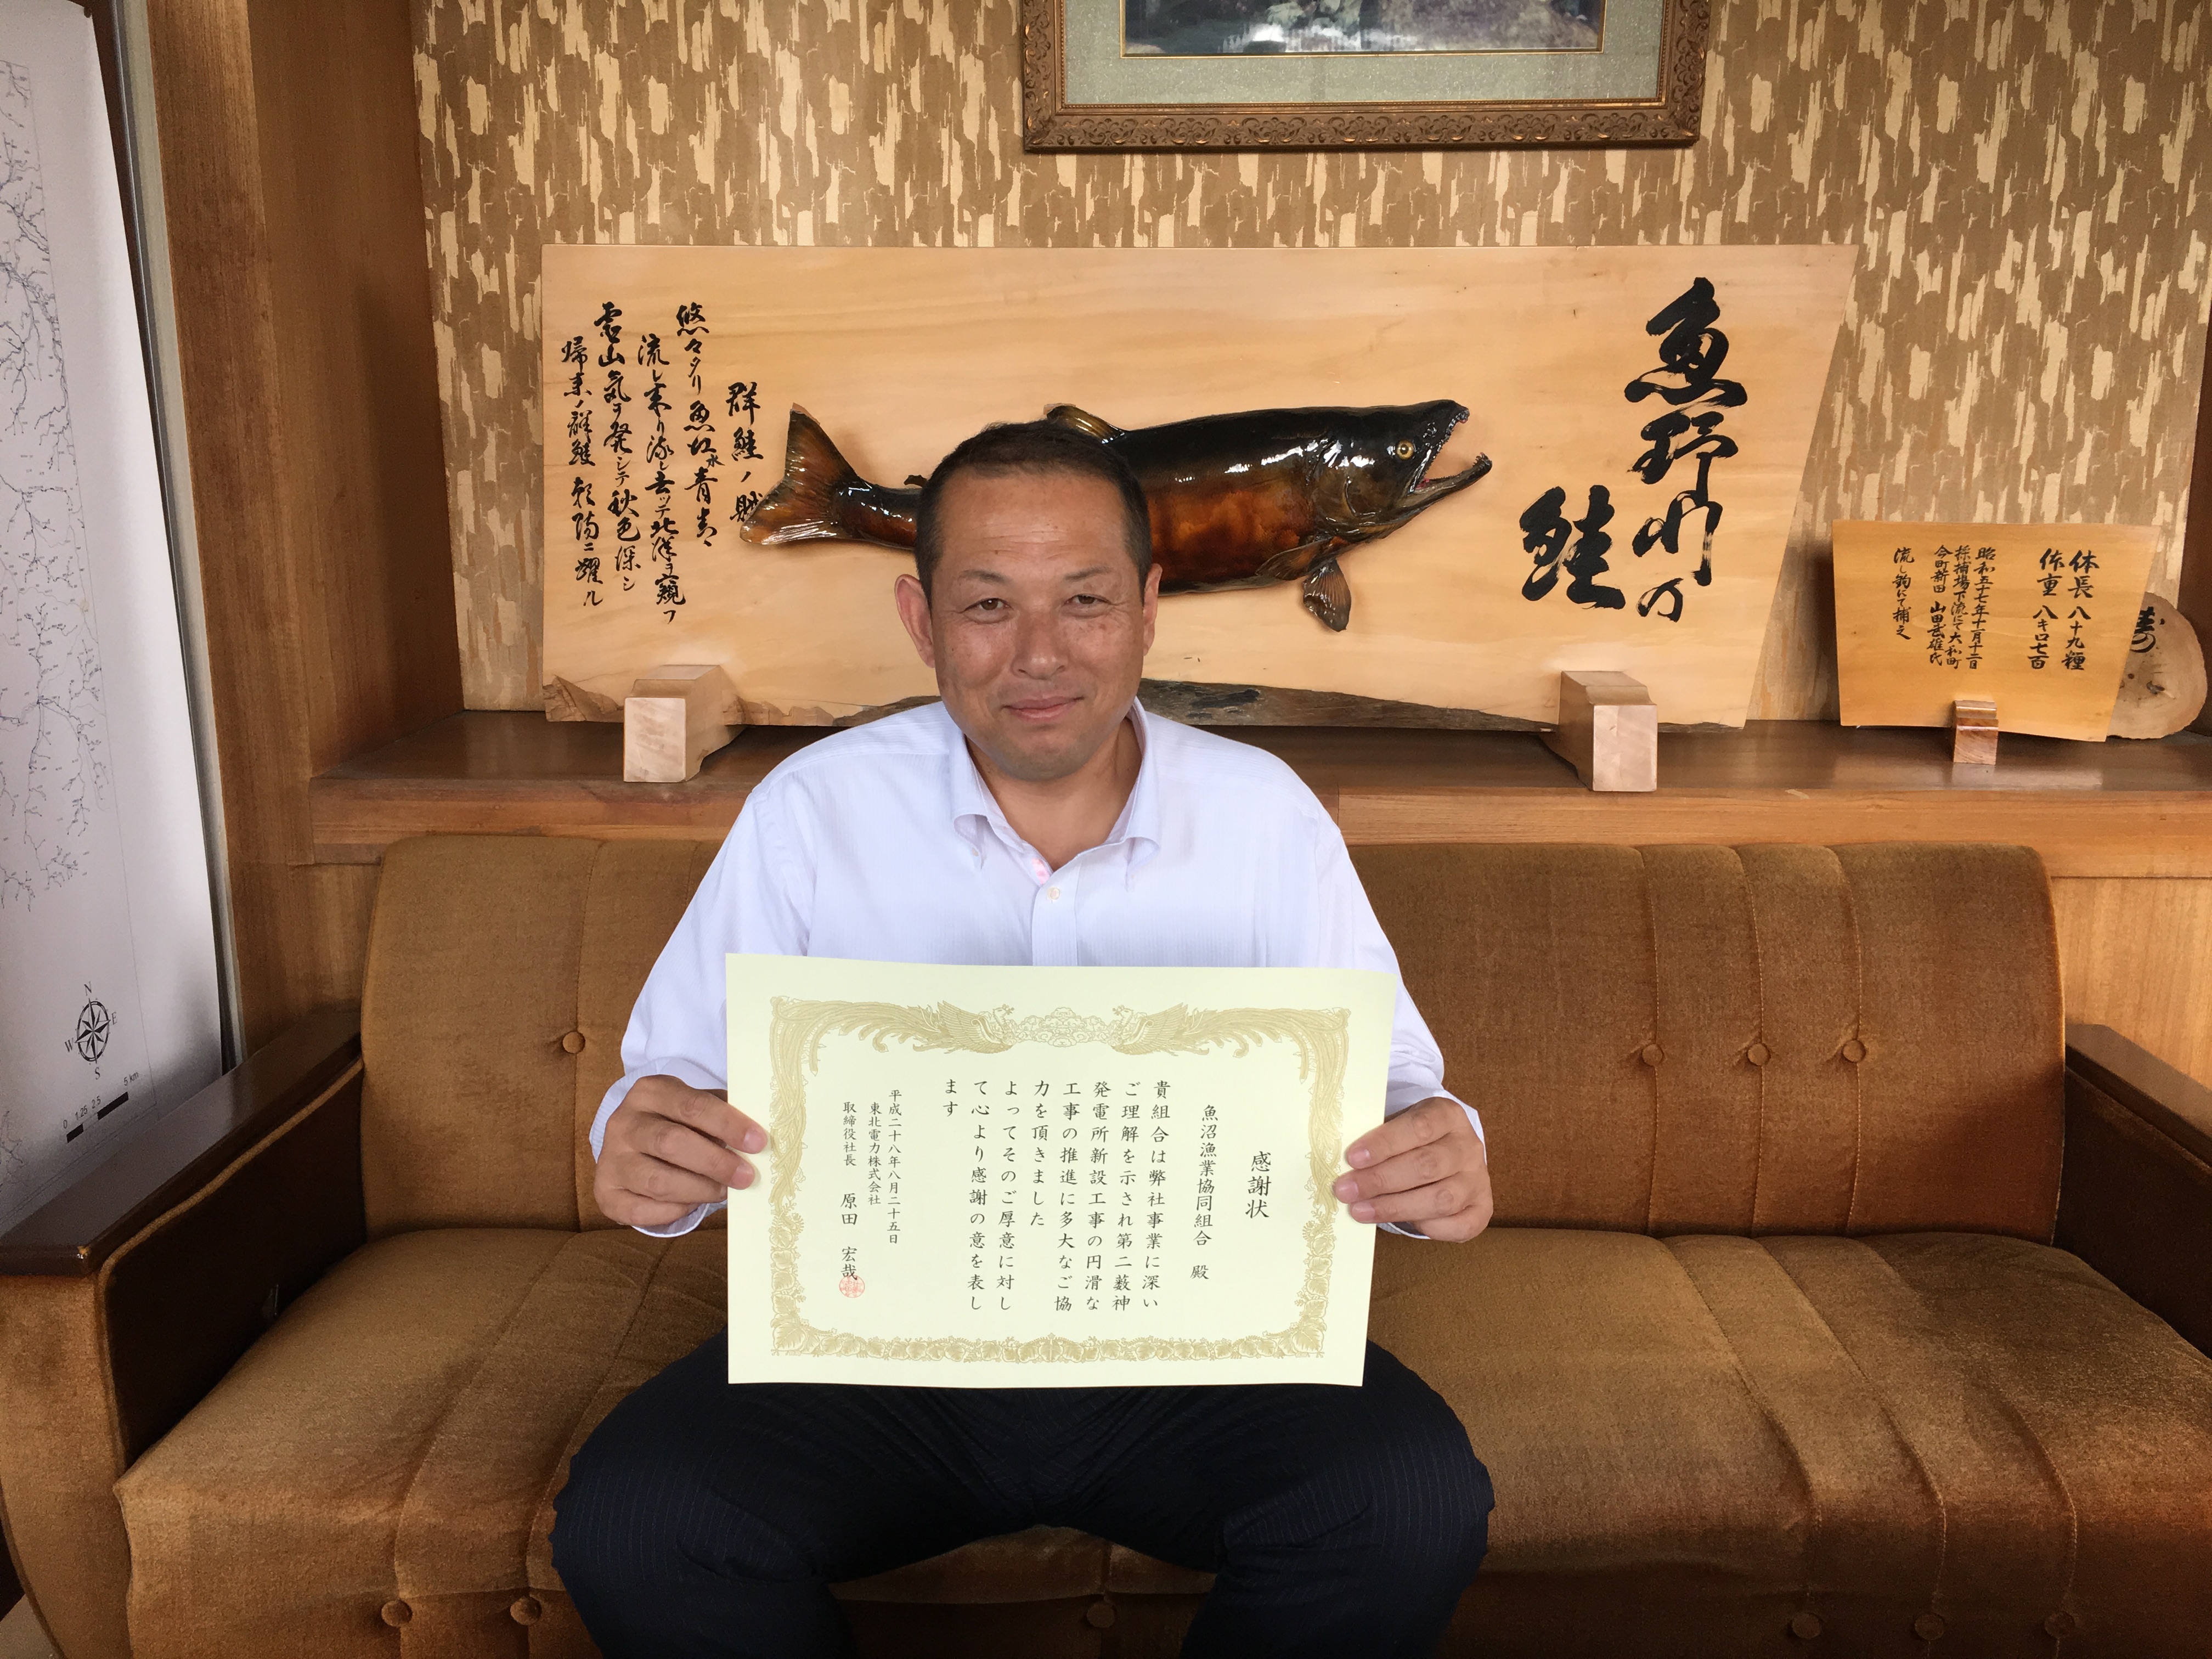 魚野川の
鮭
群鮭ノ賦
悠々タリ魚野水青青ニ
流レ来リ流レ去ッテ北洋ヲ窺フ
気ヲ発シテ秋色深シ
帰来ノ群鮭
体長 八十九糎
体重 八キロ七百
昭和五十七年十一月十二日
採捕場下流にて大和町
今町新田 山田武雄氏
流し鉤にて捕之
寿
感謝状
魚沼漁業協同組合 殿
貴組合は弊社事業に深い
ご理解を示され第二薮神
発電所新設工事の円滑な
工事の推進に多大なご協
力を頂きました
よってそのご厚意に対し
て心より感謝の意を表し
ます
平成二十八年八月二十五日
東北電力株式会社
取締役社長 原田 宏哉
N
W
E
S
0 1.25 2.5 5 km